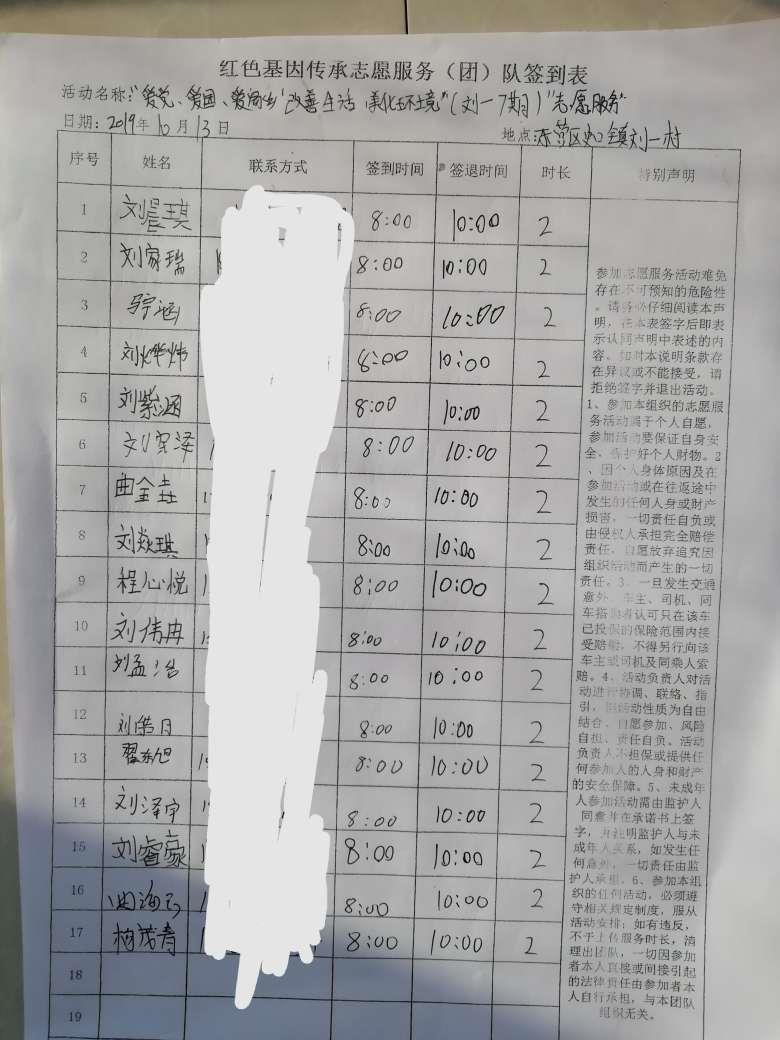 红色基因传承志愿服务（团）队签到表
活动名称：“爱党、爱国、爱家乡”“改善生活 美化环境”（刘一7期）“志愿服务”
日期：2019年10月13日 地点：东营区史口镇刘一村
序号 姓名 联系方式 签到时间 签退时间 时长 特别声明
1 刘晨琪 8:00 10:00 2
2 刘家瑞 8:00 10:00 2
3 8:00 10:00 2
4 刘烨炜 8:00 10:00 2
5 刘紫涵 8:00 10:00 2
6 刘宝泽 8:00 10:00 2
7 曲金垚 8:00 10:00 2
8 刘焱琪 8:00 10:00 2
9 程心悦 8:00 10:00 2
10 刘伟冉 8:00 10:00 2
11 刘孟洁 8:00 10:00 2
12 8:00 10:00 2
13 翟东旭 8:00 10:00 2
14 刘泽宇 8:00 10:00 2
15 刘睿豪 8:00 10:00 2
16 8:00 10:00 2
17 杨茂青 8:00 10:00 2
18
19
参加志愿服务活动难免
存在不可预知的危险性
。请务必仔细阅读本声
明，在本表签字后即表
示认同声明中表述的内
容。如对本说明条款存
在异议或不能接受，请
拒绝签字并退出活动。
1、参加本组织的志愿服
务活动属于个人自愿，
参加活动要保证自身安
全、保护好个人财物。2
、因个人身体原因及在
参加活动或在往返途中
发生的任何人身或财产
损害，一切责任自负或
由侵权人承担完全赔偿
责任，自愿放弃追究因
组织活动而产生的一切
责任。3、一旦发生交通
意外，车主、司机、同
车搭乘者认可只在该车
已投保的保险范围内接
受赔偿，不得另行向该
车主或司机及同乘人索
赔。4、活动负责人对活
动进行协调、联络、指
引，但活动性质为自由
结合、自愿参加、风险
自担、责任自负。活动
负责人不担保或提供任
何参加人的人身和财产
的安全保障。5、未成年
人参加活动需由监护人
同意并在承诺书上签
字，并注明监护人与未
成年人关系，如发生任
何意外，一切责任由监
护人承担。6、参加本组
织的任何活动，必须遵
守相关规定制度，服从
活动安排；如有违反，
不予上传服务时长，清
理出团队，一切因参加
者本人直接或间接引起
的法律责任由参加者本
人自行承担，与本团队
组织无关。